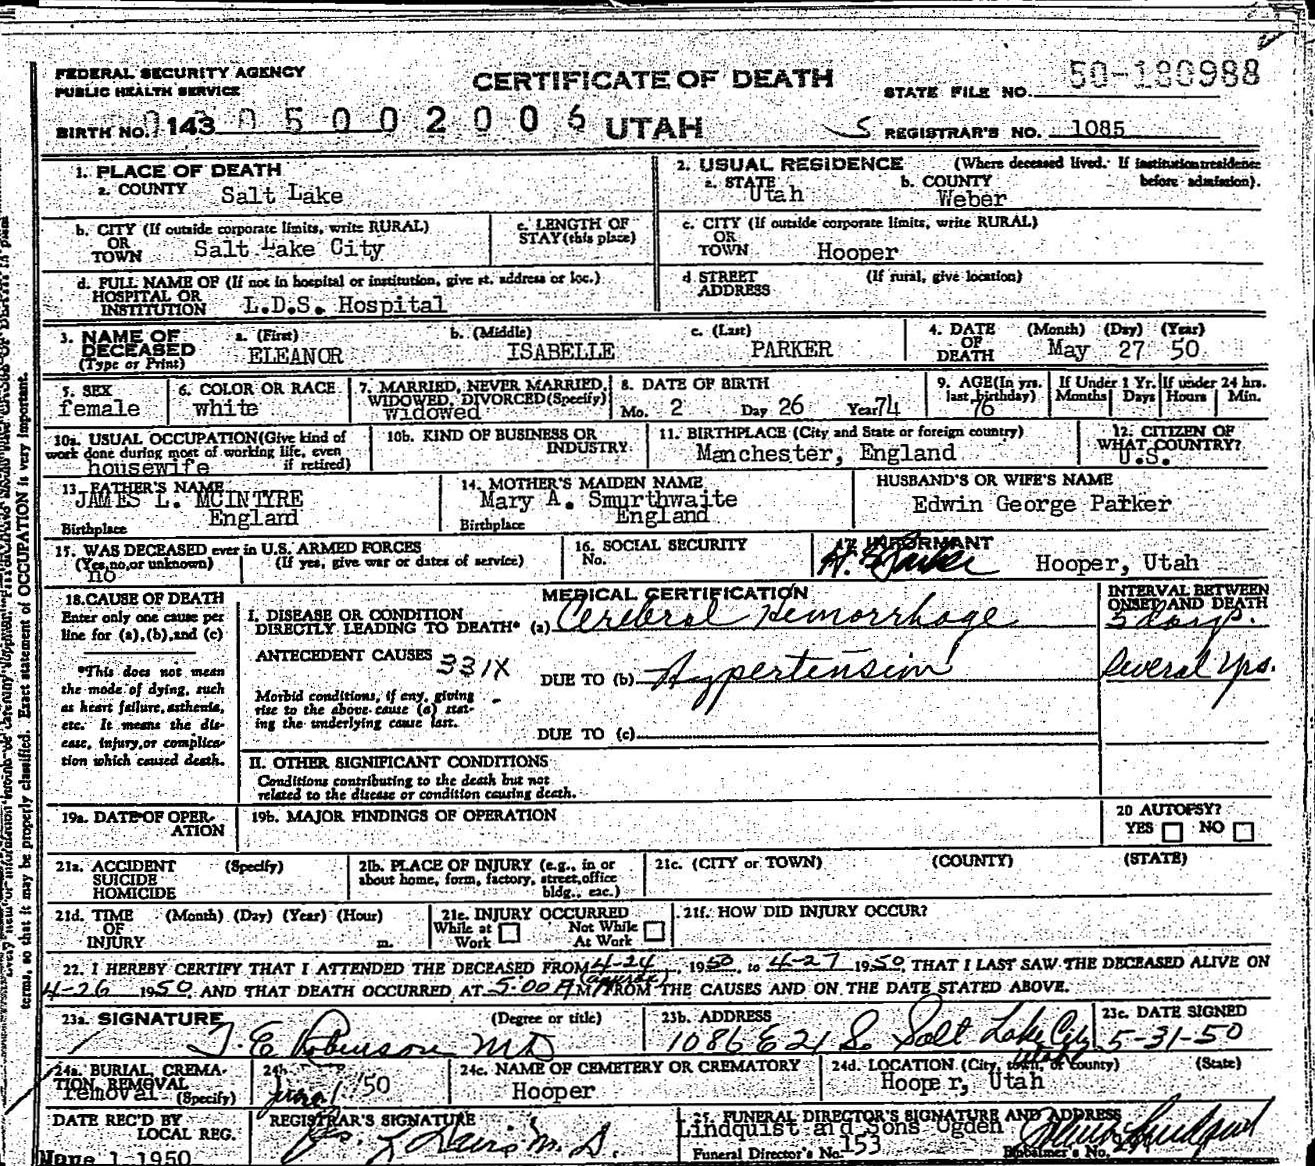 FEDERAL SECURITY AGENCY
PUBLIC HEALTH SERVICE
CERTIFICATE OF DEATH
STATE FILE NO. 50-180988
BIRTH NO. 143 0 5 0 0 2 0 0 6 UTAH
REGISTRAR'S NO. 1085
1. PLACE OF DEATH
a. COUNTY Salt Lake
2. USUAL RESIDENCE (Where deceased lived. If institution: residence before admission).
a. STATE Utah b. COUNTY Weber
b. CITY (If outside corporate limits, write RURAL) OR TOWN Salt Lake City
c. LENGTH OF STAY (this place)
c. CITY (If outside corporate limits, write RURAL) OR TOWN Hooper
d. FULL NAME OF (If not in hospital or institution, give st. address or loc.) HOSPITAL OR INSTITUTION L.D.S. Hospital
d. STREET ADDRESS (If rural, give location)
3. NAME OF DECEASED (Type or Print)
a. (First) ELEANOR b. (Middle) ISABELLE c. (Last) PARKER
4. DATE OF DEATH (Month) (Day) (Year) May 27 50
5. SEX female
6. COLOR OR RACE white
7. MARRIED, NEVER MARRIED, WIDOWED, DIVORCED (Specify) widowed
8. DATE OF BIRTH Mo. 2 Day 26 Year 74
9. AGE (In yrs. last birthday) 76
If Under 1 Yr. Months Days
If under 24 hrs. Hours Min.
10a. USUAL OCCUPATION (Give kind of work done during most of working life, even if retired) housewife
10b. KIND OF BUSINESS OR INDUSTRY
11. BIRTHPLACE (City and State or foreign country) Manchester, England
12. CITIZEN OF WHAT COUNTRY? U.S.
13. FATHER'S NAME JAMES L. MCINTYRE
Birthplace England
14. MOTHER'S MAIDEN NAME Mary A. Smurthwaite
Birthplace England
HUSBAND'S OR WIFE'S NAME
Edwin George Parker
15. WAS DECEASED ever in U.S. ARMED FORCES
(Yes, no, or unknown) (If yes, give war or dates of service)
no
16. SOCIAL SECURITY No.
17. INFORMANT Parker Hooper, Utah
18. CAUSE OF DEATH
Enter only one cause per line for (a), (b), and (c)
*This does not mean the mode of dying, such as heart failure, asthenia, etc. It means the disease, injury, or complication which caused death.
MEDICAL CERTIFICATION
INTERVAL BETWEEN ONSET AND DEATH
I. DISEASE OR CONDITION DIRECTLY LEADING TO DEATH* (a) Cerebral Hemorrhage 5 days.
ANTECEDENT CAUSES 331X
Morbid conditions, if any, giving rise to the above cause (a) stating the underlying cause last.
DUE TO (b) Hypertension Several yrs.
DUE TO (c)
II. OTHER SIGNIFICANT CONDITIONS
Conditions contributing to the death but not related to the disease or condition causing death.
19a. DATE OF OPERATION
19b. MAJOR FINDINGS OF OPERATION
20 AUTOPSY?
YES NO
21a. ACCIDENT SUICIDE HOMICIDE (Specify)
21b. PLACE OF INJURY (e.g., in or about home, form, factory, street, office bldg., eac.)
21c. (CITY or TOWN) (COUNTY) (STATE)
21d. TIME OF INJURY (Month) (Day) (Year) (Hour) m.
21e. INJURY OCCURRED
While at Work Not While At Work
21f. HOW DID INJURY OCCUR?
22. I HEREBY CERTIFY THAT I ATTENDED THE DECEASED FROM 4-24, 1950, to 4-27 1950, THAT I LAST SAW THE DECEASED ALIVE ON
4-26 1950, AND THAT DEATH OCCURRED AT 5:00 A M., FROM THE CAUSES AND ON THE DATE STATED ABOVE.
23a. SIGNATURE (Degree or title)
T. E. Robinson MD
23b. ADDRESS
1086 E 21 S. Salt Lake City Utah
23c. DATE SIGNED
5-31-50
24a. BURIAL, CREMATION, REMOVAL (Specify) removal
24b. June 1 '50
24c. NAME OF CEMETERY OR CREMATORY
Hooper
24d. LOCATION (City, town, or county) (State)
Hooper, Utah
DATE REC'D BY LOCAL REG.
June 1 1950
REGISTRAR'S SIGNATURE
L Davis M.D.
25. FUNERAL DIRECTOR'S SIGNATURE AND ADDRESS
Lindquist and Sons Ogden
Funeral Director's No. 153 Embalmer's No.
terms, so that it may be properly classified. Exact statement of OCCUPATION is very important.